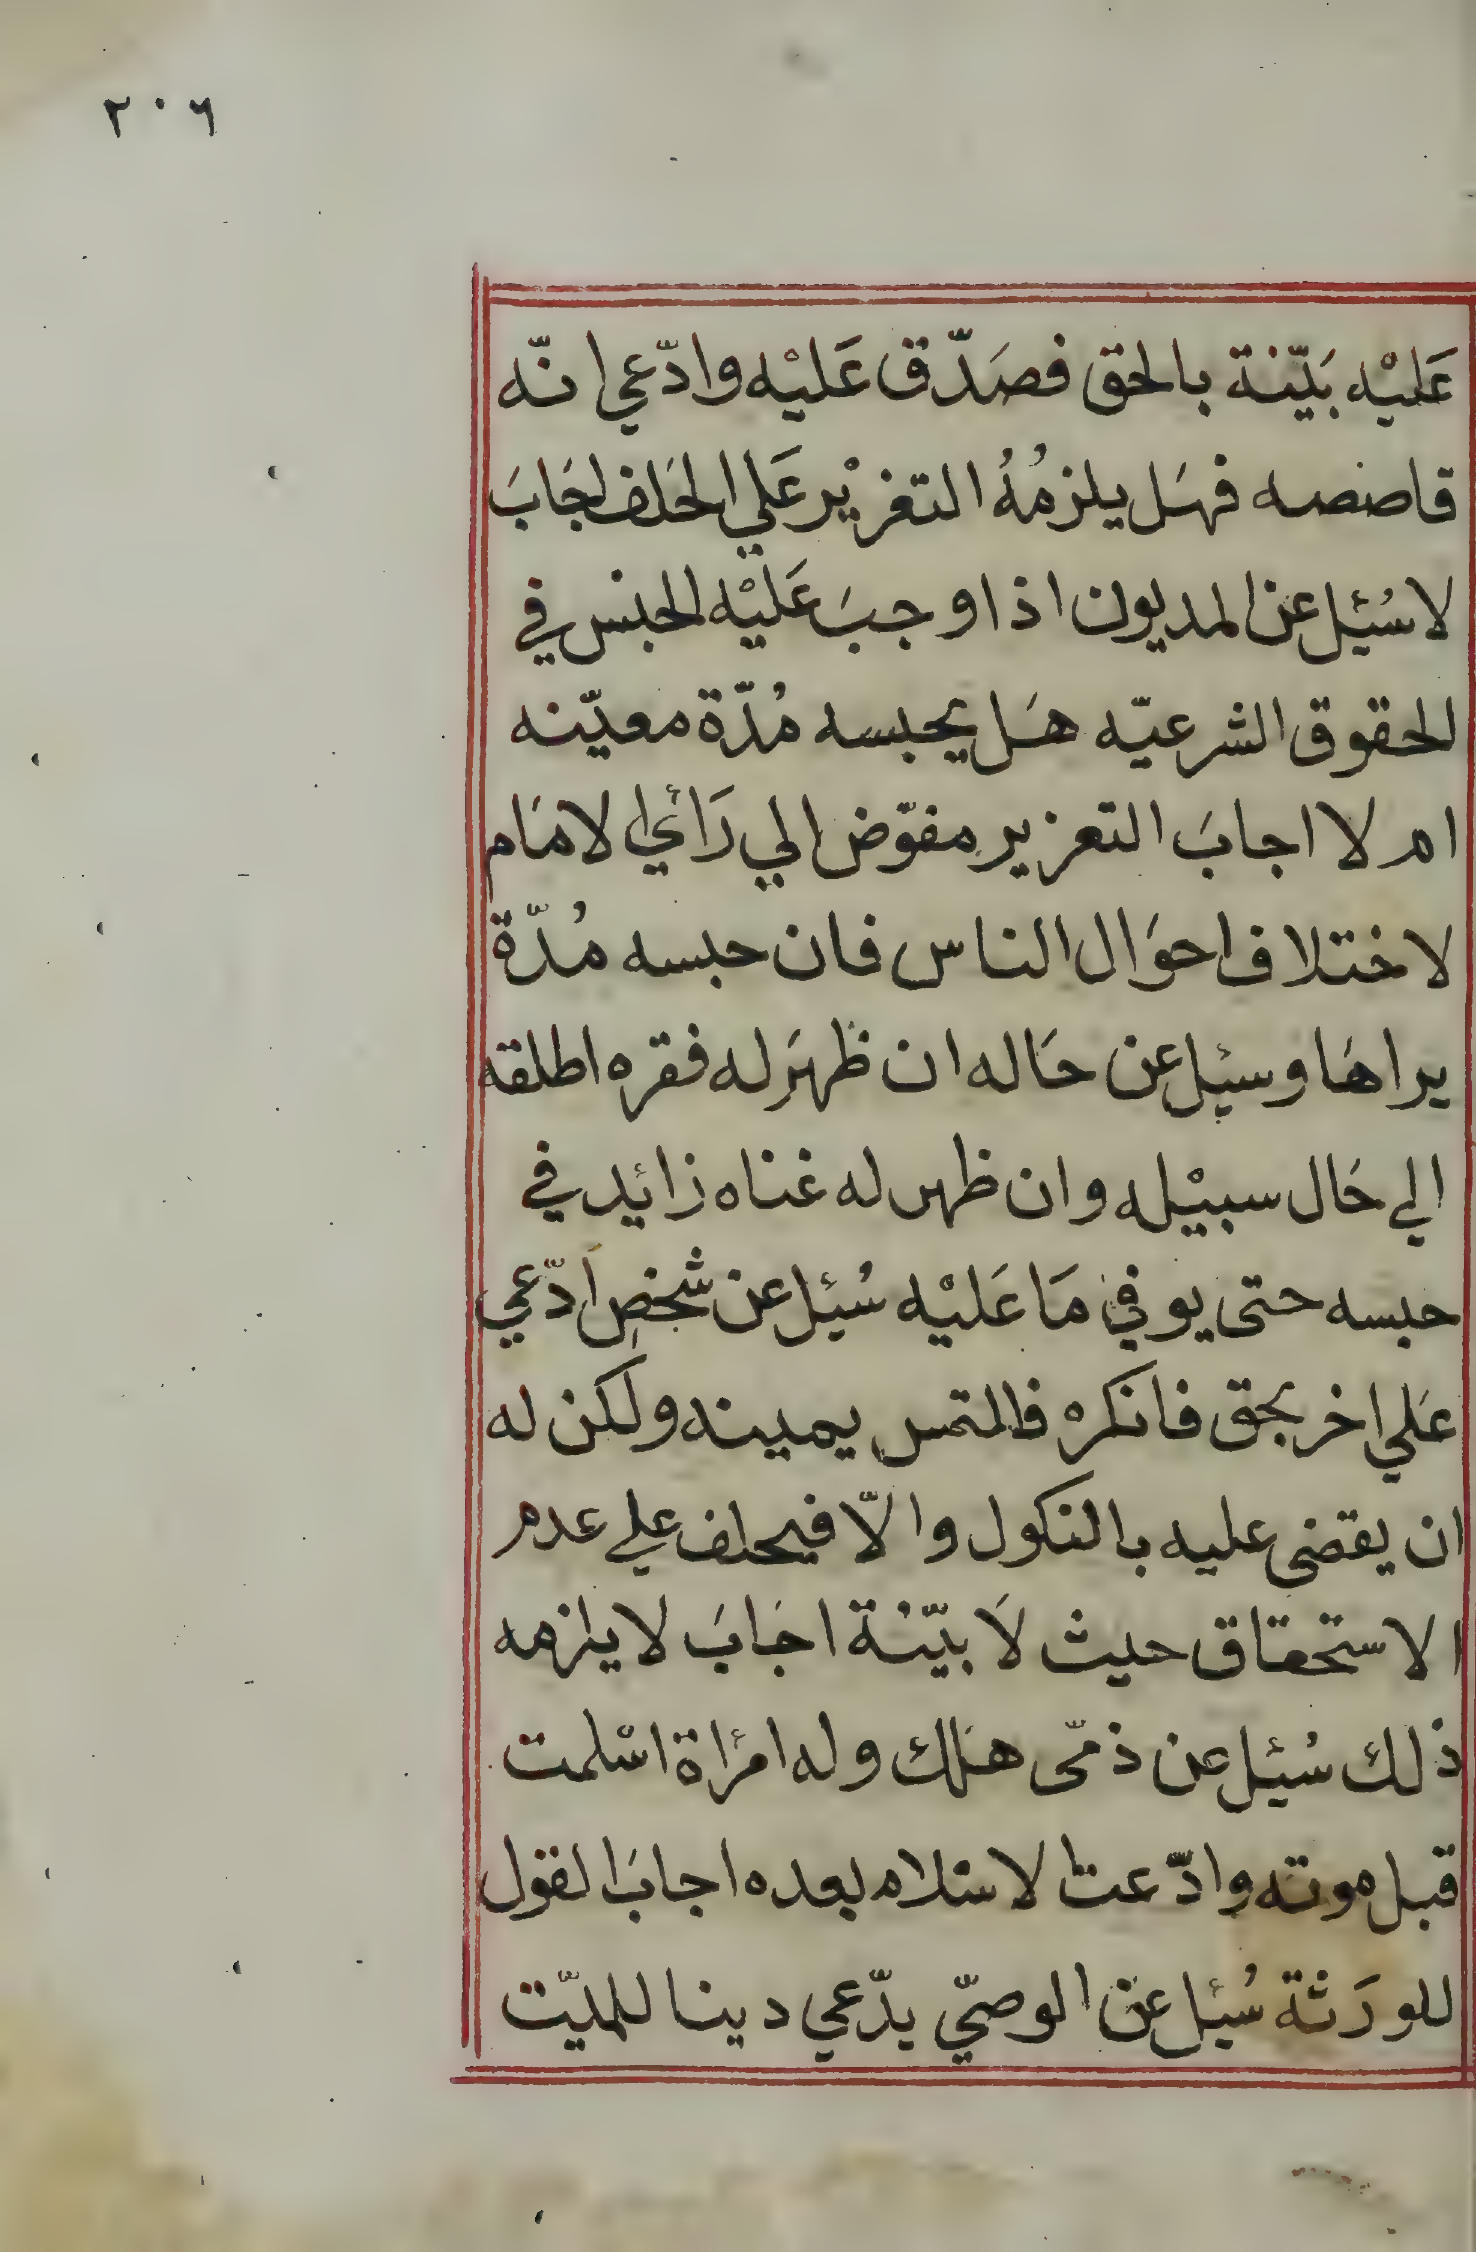 ٢٠٦
عَليْه بَيّنة بالحق فصَدّق عَليْه وادّعي انّه
قاصصه فهَل يلزمُهُ التغزيْر عَلي الحَلف اجَابَ
لا سُئِل عن المديون اذا وجبَ عَليْه الحبْس في
الحقوق الشرعيّه هَل يحبسه مُدّة معيّنه
ام لا اجابَ التعزير مفوّض الي رَأئي الامَام
لاختلاف احوَال الناس فان حبسه مُدّة
يراهَا وسئِل عن حَاله ان ظهَر له فقره اطلقه
الي حَال سبيْله وان ظهر له غناه زائد في
حبسه حتى يوفي مَا عَليْه سُئِل عن شخصٍ ادّعي
عَلي اخر بحق فانكره فالتمس يمينه ولكن له
ان يقضى عليه بالنكول والّا فيحلف علي عدم
الاستحقاق حيث لَا بيّنة اجَابَ لا يلزمه
ذلك سُئِل عن ذمّى هَلك وله امرْاة اسْلمت
قبل موته وادّعت الاسْلام بعده اجابَ القول
للورَثة سُئِل عن الوصيّ يدّعي دينا للميّت